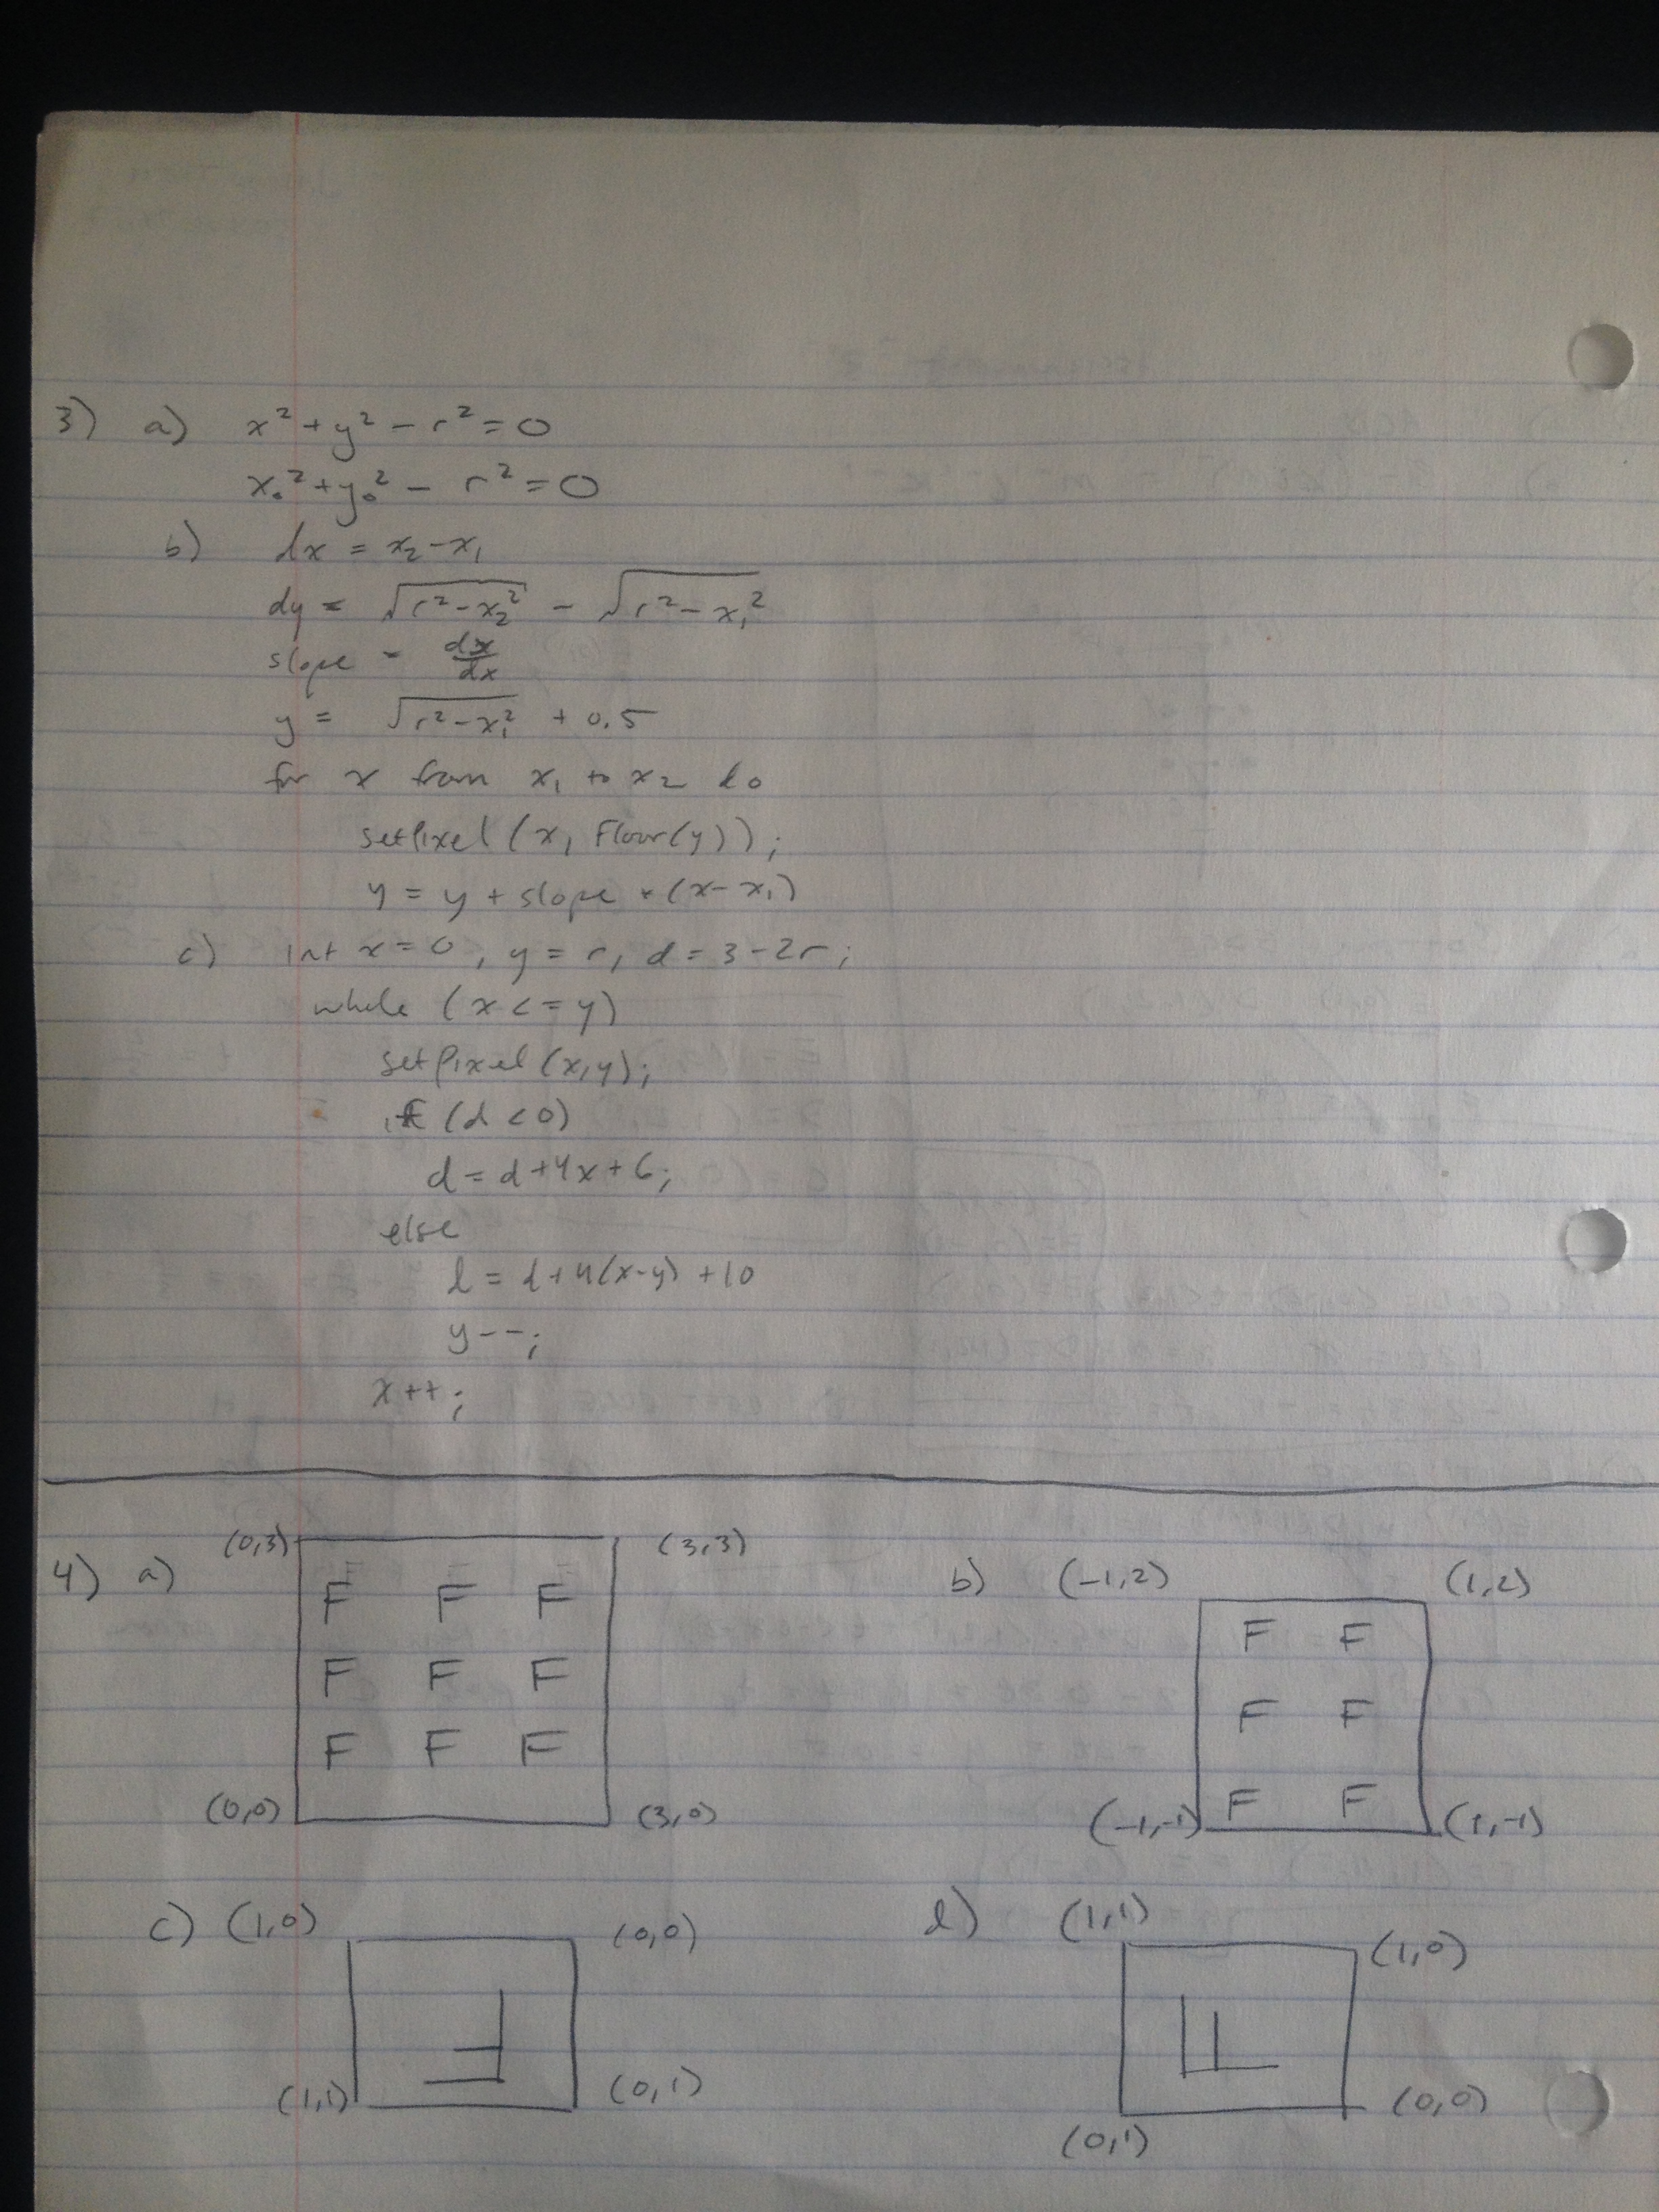 3) a) x² + y² - r² = 0
x₀² + y₀² - r² = 0
b) dx = x₂ - x₁
dy = √(r² - x₂²) - √(r² - x₁²)
slope = dx/dx
y = √(r² - x₁²) + 0.5
for x from x₁ to x₂ do
setPixel (x, Floor(y));
y = y + slope * (x - x₁)
c) int x = 0, y = r, d = 3 - 2r;
while (x <= y)
setPixel (x,y);
if (d < 0)
d = d + 4x + 6;
else
d = d + 4(x-y) + 10
y--;
x++;
4) a) (0,3) (3,3)
F F F
F F F
F F F
(0,0) (3,0)
b) (-1,2) (1,2)
F F
F F
F F
(-1,-1) (1,-1)
c) (1,0) (0,0)
F
(1,1) (0,1)
d) (1,1) (1,0)
F
(0,1) (0,0)